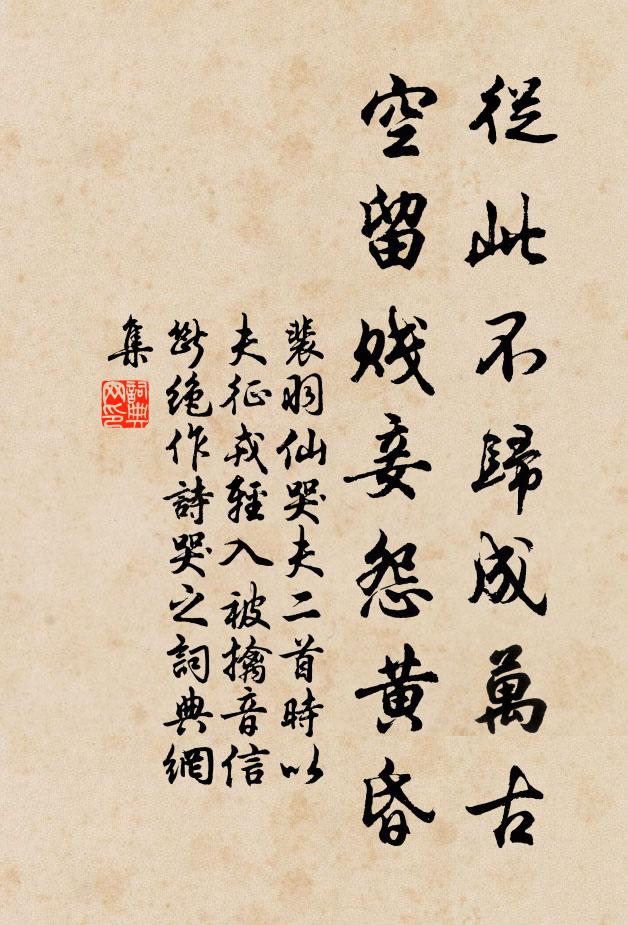 從此不歸成萬古
空留賤妾怨黃昏
裴羽仙哭夫二首時以
夫征戎輕入被擒音信
斷絶作詩哭之詞典網
集
詞典
网印